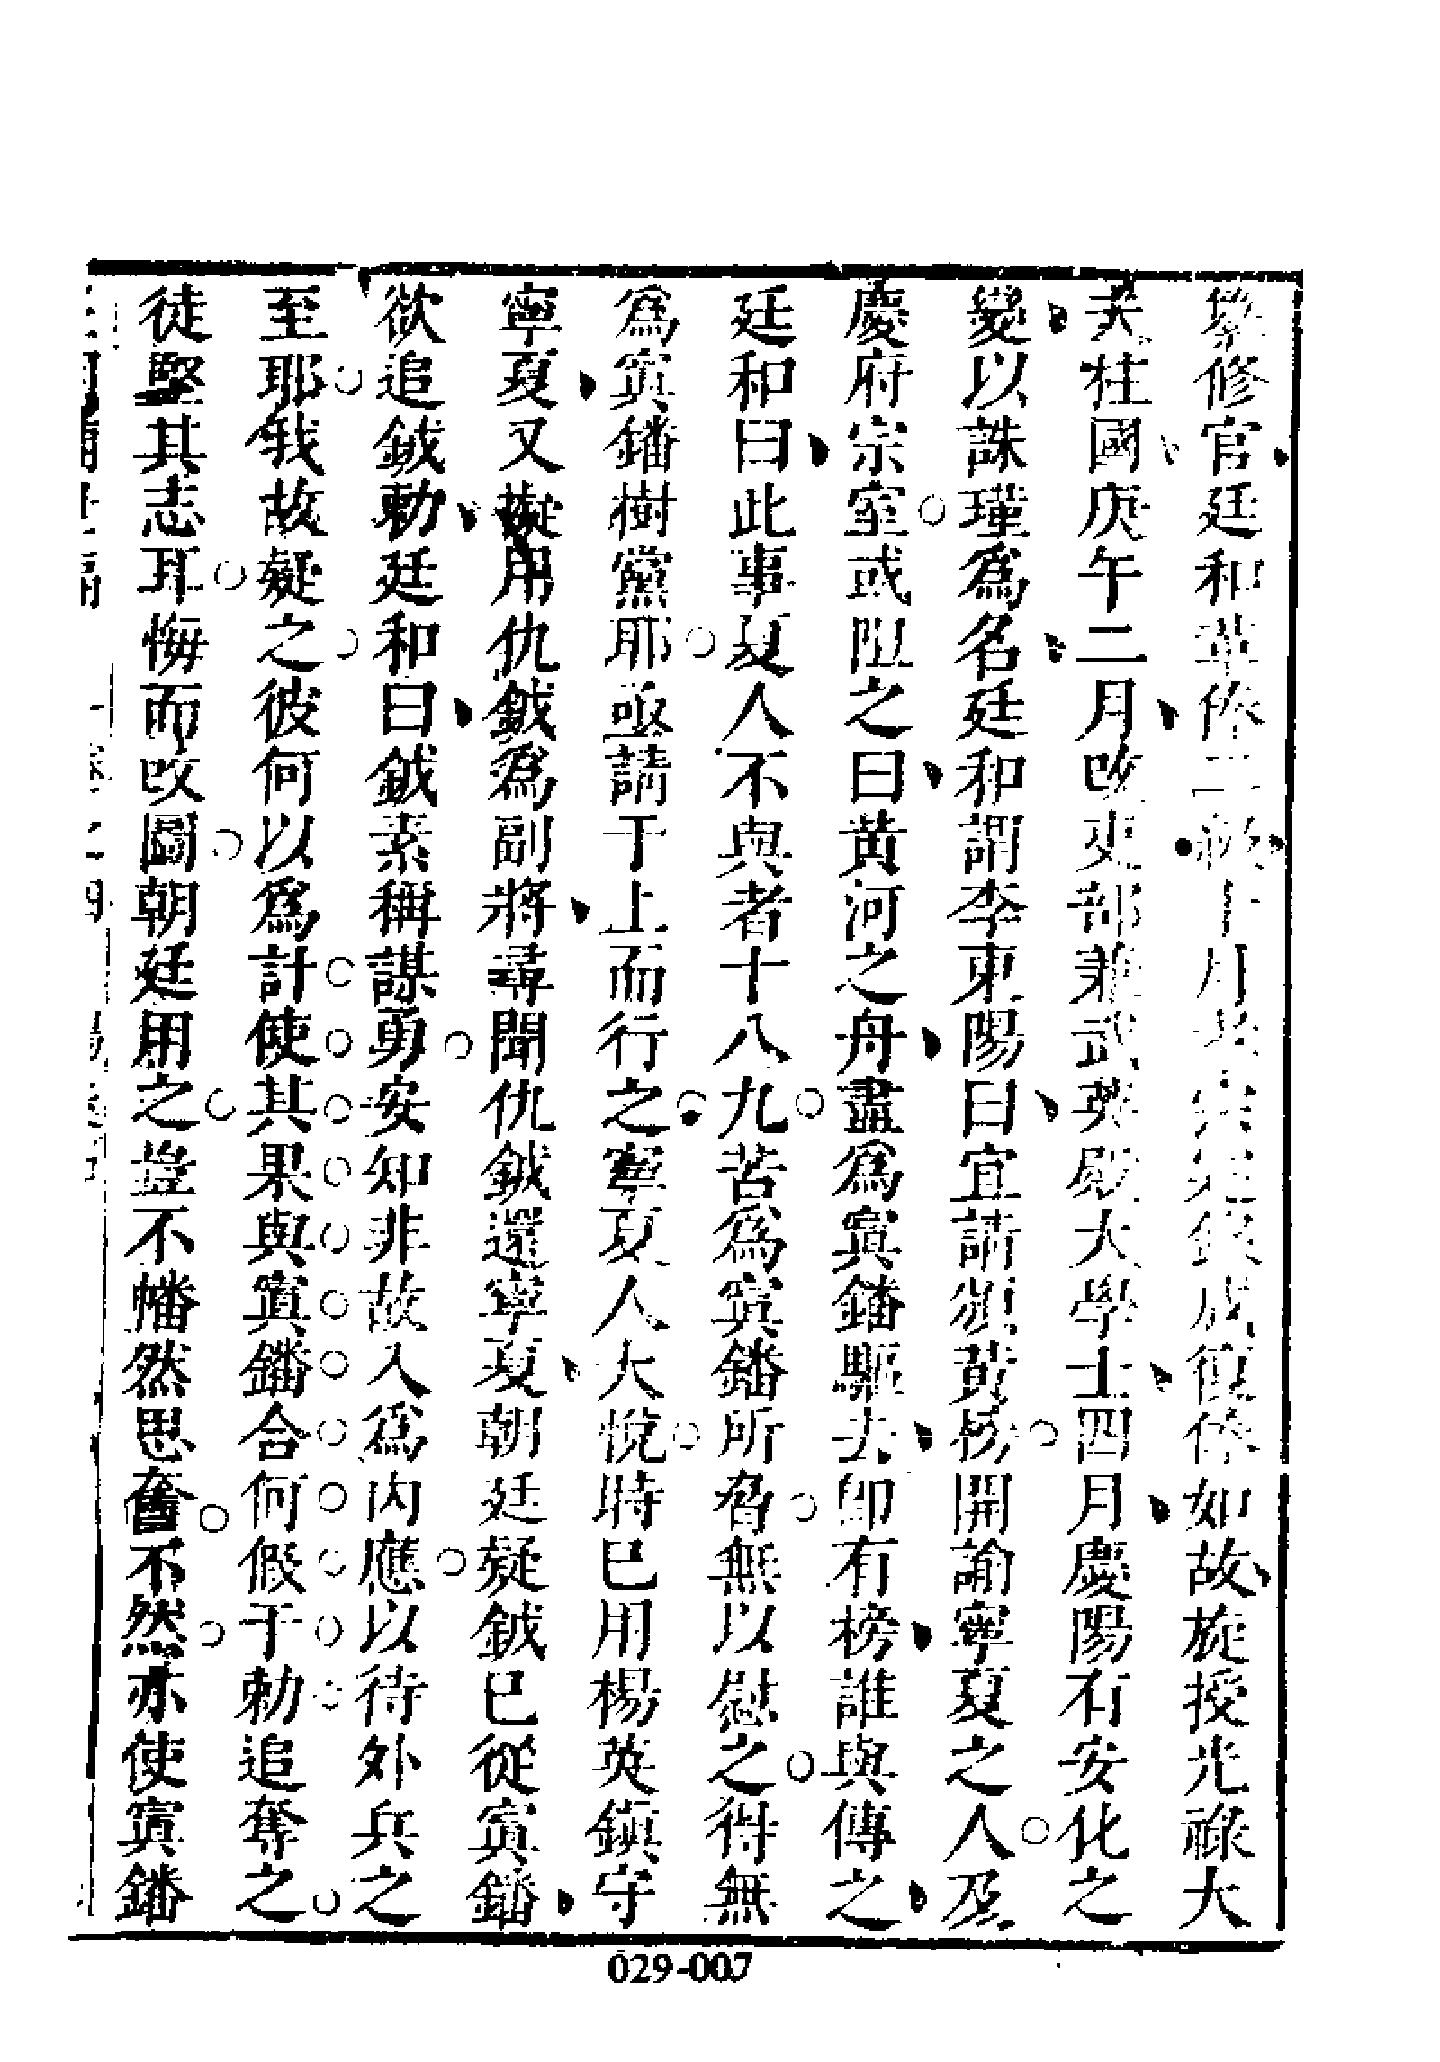 修官廷和革俸二級十月孝宗實錄成復俸如故旋授光祿大
夫柱國庚午二月改吏部兼武英殿大學士四月慶陽有安化之
變以誅瑾爲名廷和謂李東陽曰宜請頒黃榜開諭寧夏之人及
慶府宗室或阻之曰黃河之舟盡爲寘鐇驅去卽有榜誰與傳之
廷和曰此事夏人不與者十八九苦爲寘鐇所脅無以慰之得無
爲寘鐇樹黨耶亟請于上而行之寧夏人大悅時已用楊英鎭守
寧夏又擬用仇鉞爲副將尋聞仇鉞還寧夏朝廷疑鉞已從寘鐇
欲追鉞勅廷和曰鉞素稱謀勇安知非故入爲內應以待外兵之
至耶我故疑之彼何以爲計使其果與寘鐇合何假于勅追奪之
徒堅其志耳悔而改圖朝廷用之豈不幡然思奮不然亦使寘鐇